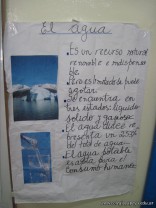 El agua
• Es un recurso natural
renovable e indispensa-
ble.
se encuentra en
tres estados: líquido
solido y gaseoso.
• El agua dulce re-
presenta un 2,53%
del total de agua
• El agua potable
es apta para el
consumo humano